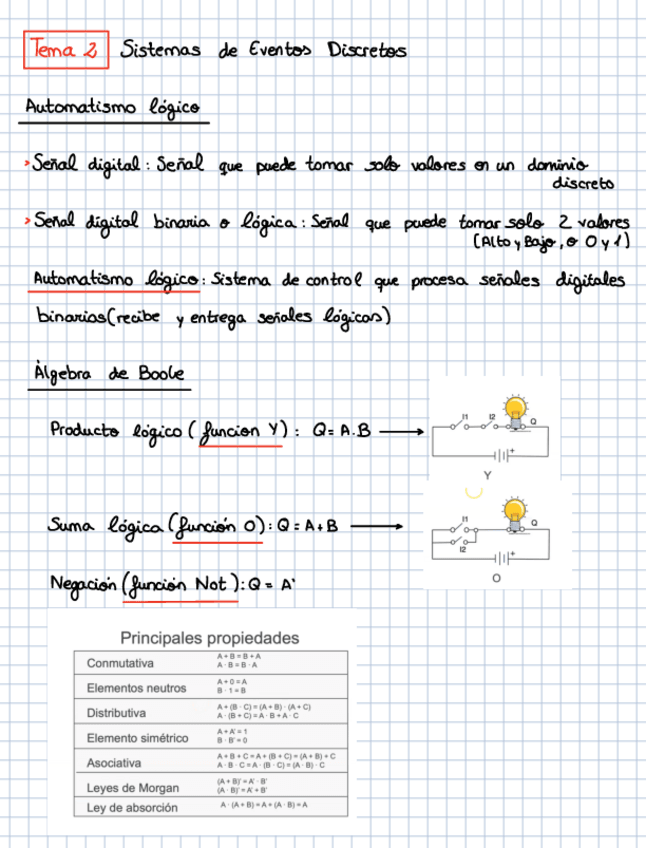 Tema 2 Sistemas de Eventos Discretos
Automatismo lógico
> Señal digital: Señal que puede tomar solo valores en un dominio
discreto
> Señal digital binaria o lógica: Señal que puede tomar solo 2 valores
(Alto y Bajo, o 0 y 1)
Automatismo lógico: Sistema de control que procesa señales digitales
binarias (recibe y entrega señales lógicas)
Álgebra de Boole
Producto lógico (funcion Y): Q = A.B
I1 I2 Q
+
Y
Suma lógica (función O): Q = A+B
I1 Q
I2
+
O
Negación (función Not): Q = A'
Principales propiedades
Conmutativa A + B = B + A
A · B = B · A
Elementos neutros A + 0 = A
B · 1 = B
Distributiva A + (B · C) = (A + B) · (A + C)
A · (B + C) = A · B + A · C
Elemento simétrico A + A' = 1
B · B' = 0
Asociativa A + B + C = A + (B + C) = (A + B) + C
A · B · C = A · (B · C) = (A · B) · C
Leyes de Morgan (A + B)' = A' · B'
(A · B)' = A' + B'
Ley de absorción A · (A + B) = A + (A · B) = A